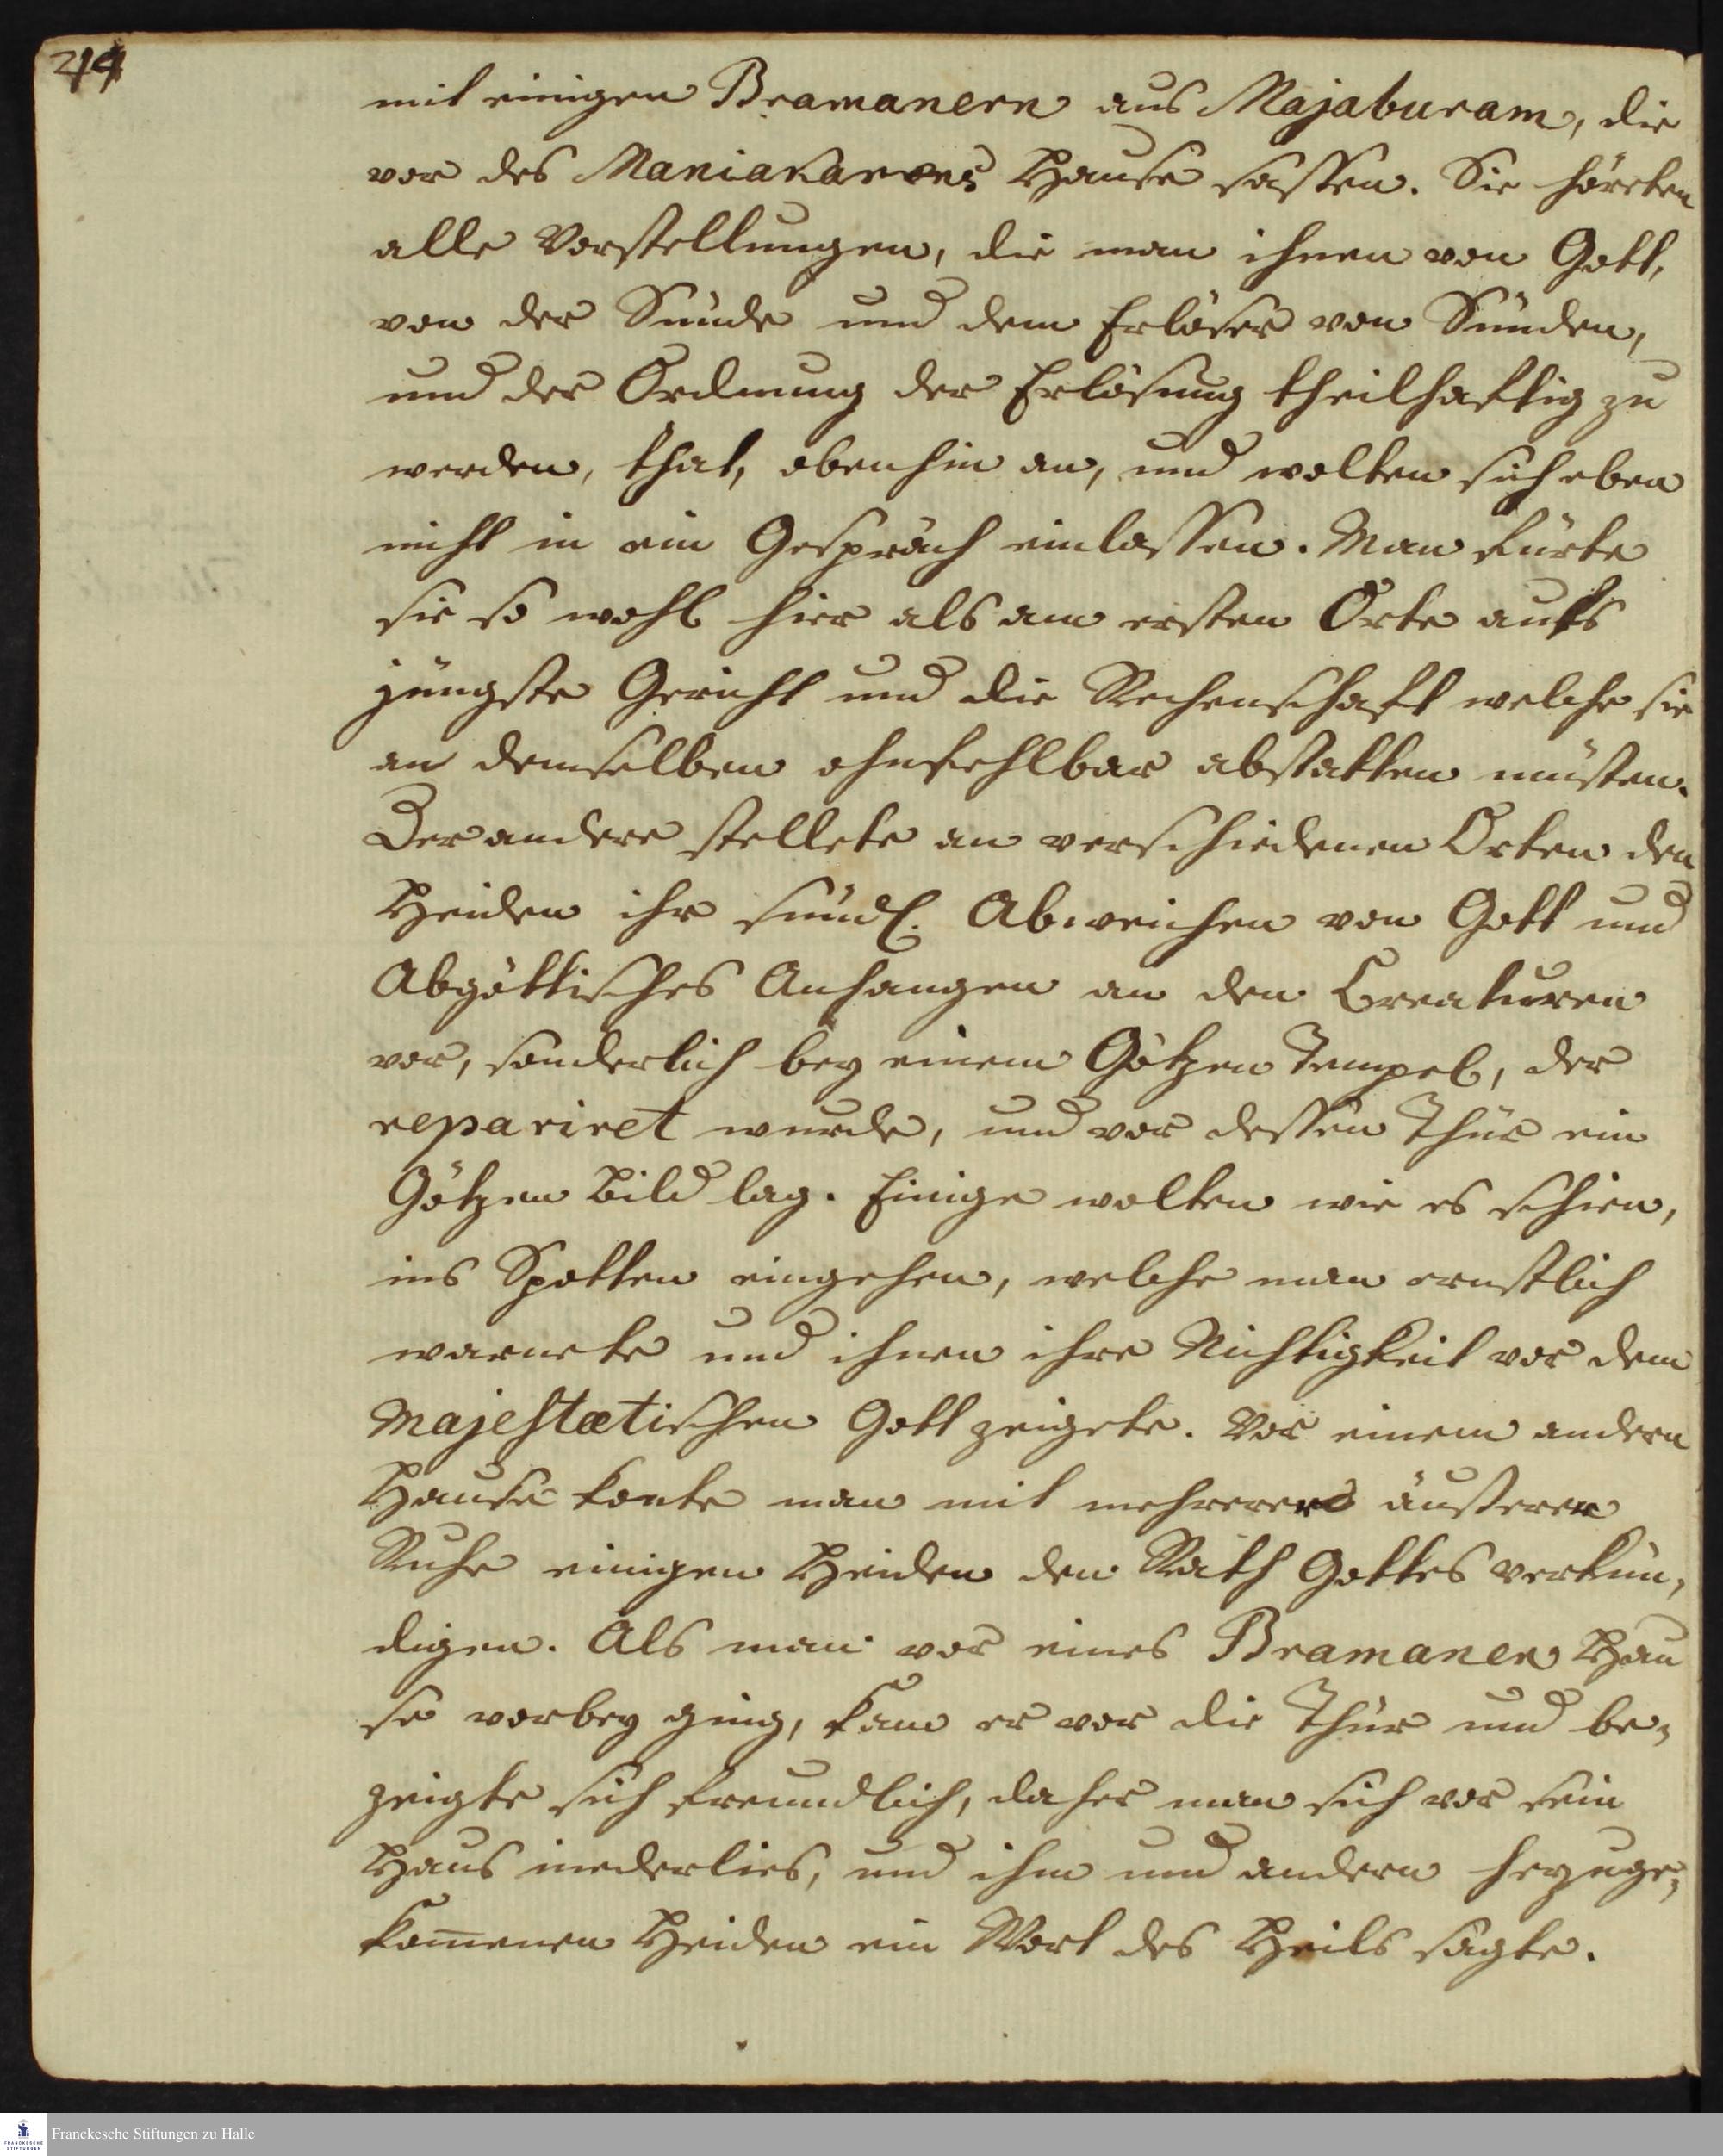 214
mit einigen Bramanern aus Majaburam, die
vor des Maniakarens Hause sassen. Sie höreten
alle Vorstellungen, die man ihnen von Gott,
von der Sünde und dem Erlöser von Sünden,
und der Ordnung der Erlösung theilhafftig zu
werden, that, obenhin an, und wolten sich eben
nicht in ein Gespräch einlassen. Man fürte
sie so wohl hier als am ersten Orte aufs
jüngste Gericht und die Rechenschafft welche sie
an demselben ohnfehlbar abstatten müsten.
Der andere stellete an verschiedenen Orten den
Heiden ihr sündl. Abweichen von Gott und
Abgöttisches Anhangen an den Creaturen
vor, sonderlich bey einem Götzen Tempel, der
repariret wurde, und vor dessen Thür ein
Götzen Bild lag. Einige wolten wie es schien,
ins Spotten eingehen, welche man ernstlich
warnete und ihnen ihre Nichtigkeit vor dem
Majestætischen Gott zeigete. Vor einem andern
Hause konte man mit mehrerer äusserer
Ruhe einigen Heiden den Rath Gottes verkün,
digen. Als man vor eines Bramaner Hau
se vorbey ging, kam er vor die Thür und be,
zeigte sich freundlich, daher man sich vor sein
Haus niederlies, und ihm und andern herzuge,
kom̄enen Heiden ein Wort des Heils sagte.
FRANCKESCHE STIFTUNGEN
Franckesche Stiftungen zu Halle